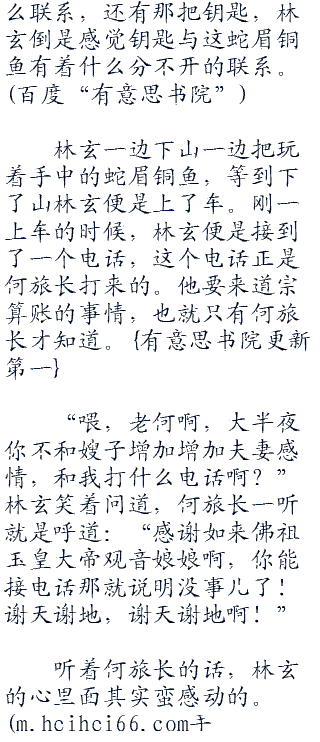 么联系，还有那把钥匙，林
玄倒是感觉钥匙与这蛇眉铜
鱼有着什么分不开的联系。
(百度“有意思书院”)
林玄一边下山一边把玩
着手中的蛇眉铜鱼，等到下
了山林玄便是上了车。刚一
上车的时候，林玄便是接到
了一个电话，这个电话正是
何旅长打来的。他要来道宗
算账的事情，也就只有何旅
长才知道。{有意思书院更新
第一}
“喂，老何啊，大半夜
你不和嫂子增加增加夫妻感
情，和我打什么电话啊？”
林玄笑着问道，何旅长一听
就是呼道：“感谢如来佛祖
玉皇大帝观音娘娘啊，你能
接电话那就说明没事儿了！
谢天谢地，谢天谢地啊！”
听着何旅长的话，林玄
的心里面其实蛮感动的。
(m.hcihci66.com